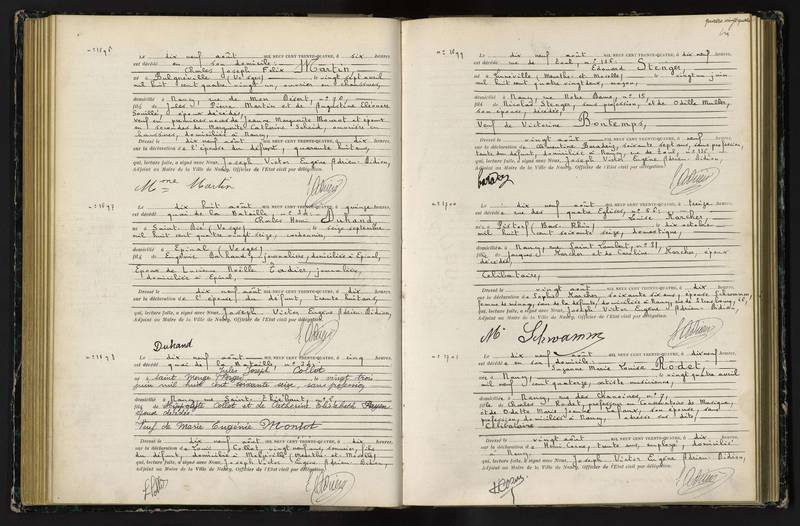 n° 1696
Le dix neuf août MIL NEUF CENT TRENTE-QUATRE, à six HEURES,
est décédé en son domicile
Charles Joseph Felix Martin,
né à Bulgnéville (Vosges) le vingt sept avril
mil huit cent quatre vingt un, ouvrier en chaussures,
domicilié à Nancy, rue de Mon Désert, n° 70
fils de Jules Pierre Martin et de Augustine Eléonore
époux décédés,
Veuf en premières noces de Jeanne Marguerite et époux
en secondes de Marguerite Catherine ouvrière en
chaussures, domiciliée à Nancy,
Dressé le dix neuf août MIL NEUF CENT TRENTE-QUATRE, à dix HEURES,
sur la déclaration de l'épouse du défunt, quarante huit ans,
qui, lecture faite, a signé avec Nous, Joseph Victor Eugène Adrien Bidion,
Adjoint au Maire de la Ville de Nancy, Officier de l'Etat civil par délégation.
Mme Martin
n° 1697
Le dix huit août MIL NEUF CENT TRENTE-QUATRE, à quinze HEURES,
est décédé quai de la Bataille, n°
Charles Henri Duhand,
né à Saint Dié (Vosges) le seize septembre
mil huit cent quatre vingt seize, cordonnier,
domicilié à Epinal (Vosges)
fils de Eugénie Duhand, journalière, domiciliée à Epinal,
Epoux de Lucienne Noëlle journalière,
domiciliée à Epinal,
Dressé le dix neuf août MIL NEUF CENT TRENTE-QUATRE, à dix HEURES,
sur la déclaration de l'épouse du défunt, trente huit ans,
qui, lecture faite, a signé avec Nous, Joseph Victor Eugène Adrien Bidion,
Adjoint au Maire de la Ville de Nancy, Officier de l'Etat civil par délégation.
Duhand
n° 1698
Le dix neuf août MIL NEUF CENT TRENTE-QUATRE, à cinq HEURES,
est décédé quai de la Bataille, n°
Jules Joseph Collot
né à le vingt trois
juin mil huit cent soixante seize, sans profession
domicilié à Nancy, rue Saint
fils de Hippolyte Collot et de Catherine Elisabeth
époux décédés
Veuf de Marie Eugénie Monsot
Dressé le dix neuf août MIL NEUF CENT TRENTE-QUATRE, à dix HEURES,
sur la déclaration de Louis Collot, vingt neuf ans, fils
du défunt, domicilié à (Meurthe et Moselle)
qui, lecture faite, a signé avec Nous, Joseph Victor Eugène Adrien Bidion,
Adjoint au Maire de la Ville de Nancy, Officier de l'Etat civil par délégation.
n° 1699
Le dix neuf août MIL NEUF CENT TRENTE-QUATRE, à dix neuf HEURES,
est décédé rue de Toul, n° 116
Edouard Stenger,
né à (Meurthe et Moselle) le vingt un juin
mil huit cent quatre vingt deux, maçon,
domicilié à Nancy, rue Notre Dame, n° 15,
fils de Nicolas Stenger, sans profession, et de Odille Muller,
son épouse, décédés,
Veuf de Victorine Bontemps,
Dressé le vingt août MIL NEUF CENT TRENTE-QUATRE, à neuf HEURES,
sur la déclaration de Clémentine soixante sept ans, sans profession,
tante du défunt, domiciliée à Nancy, rue de Toul, n° 116,
qui, lecture faite, a signé avec Nous, Joseph Victor Eugène Adrien Bidion,
Adjoint au Maire de la Ville de Nancy, Officier de l'Etat civil par délégation.
n° 1700
Le dix neuf août MIL NEUF CENT TRENTE-QUATRE, à treize HEURES,
est décédée rue des quatre Eglises, n°
Louise Karcher,
née à (Bas Rhin) le dix octobre
mil huit cent soixante seize, domestique,
domiciliée à Nancy, rue Saint Lambert, n° 31,
fille de Jacques Karcher et de Caroline Karcher, époux
décédés,
Célibataire,
Dressé le vingt août MIL NEUF CENT TRENTE-QUATRE, à dix HEURES,
sur la déclaration de Sophie Karcher, soixante six ans, épouse Schwamm,
soeur de la défunte, domiciliée à Nancy, rue de Strasbourg,
qui, lecture faite, a signé avec Nous, Joseph Victor Eugène Adrien Bidion,
Adjoint au Maire de la Ville de Nancy, Officier de l'Etat civil par délégation.
Me Schwamm
n° 1701
Le dix neuf août MIL NEUF CENT TRENTE-QUATRE, à dix neuf HEURES,
est décédée en son domicile
Suzanne Marie Louise Rodet,
née à Nancy, le vingt quatre avril
mil neuf cent quatorze, artiste musicienne,
domiciliée à Nancy, rue des Chanoines, n° 9,
fille de Charles Rodet, professeur au Conservatoire de Musique,
et de Odette Marie Jeanne son épouse, sans
profession, domiciliés à Nancy, adresse sus dite,
Célibataire
Dressé le vingt août MIL NEUF CENT TRENTE-QUATRE, à dix HEURES,
sur la déclaration de trente ans, employé, domicilié
à Nancy,
qui, lecture faite, a signé avec Nous, Joseph Victor Eugène Adrien Bidion,
Adjoint au Maire de la Ville de Nancy, Officier de l'Etat civil par délégation.